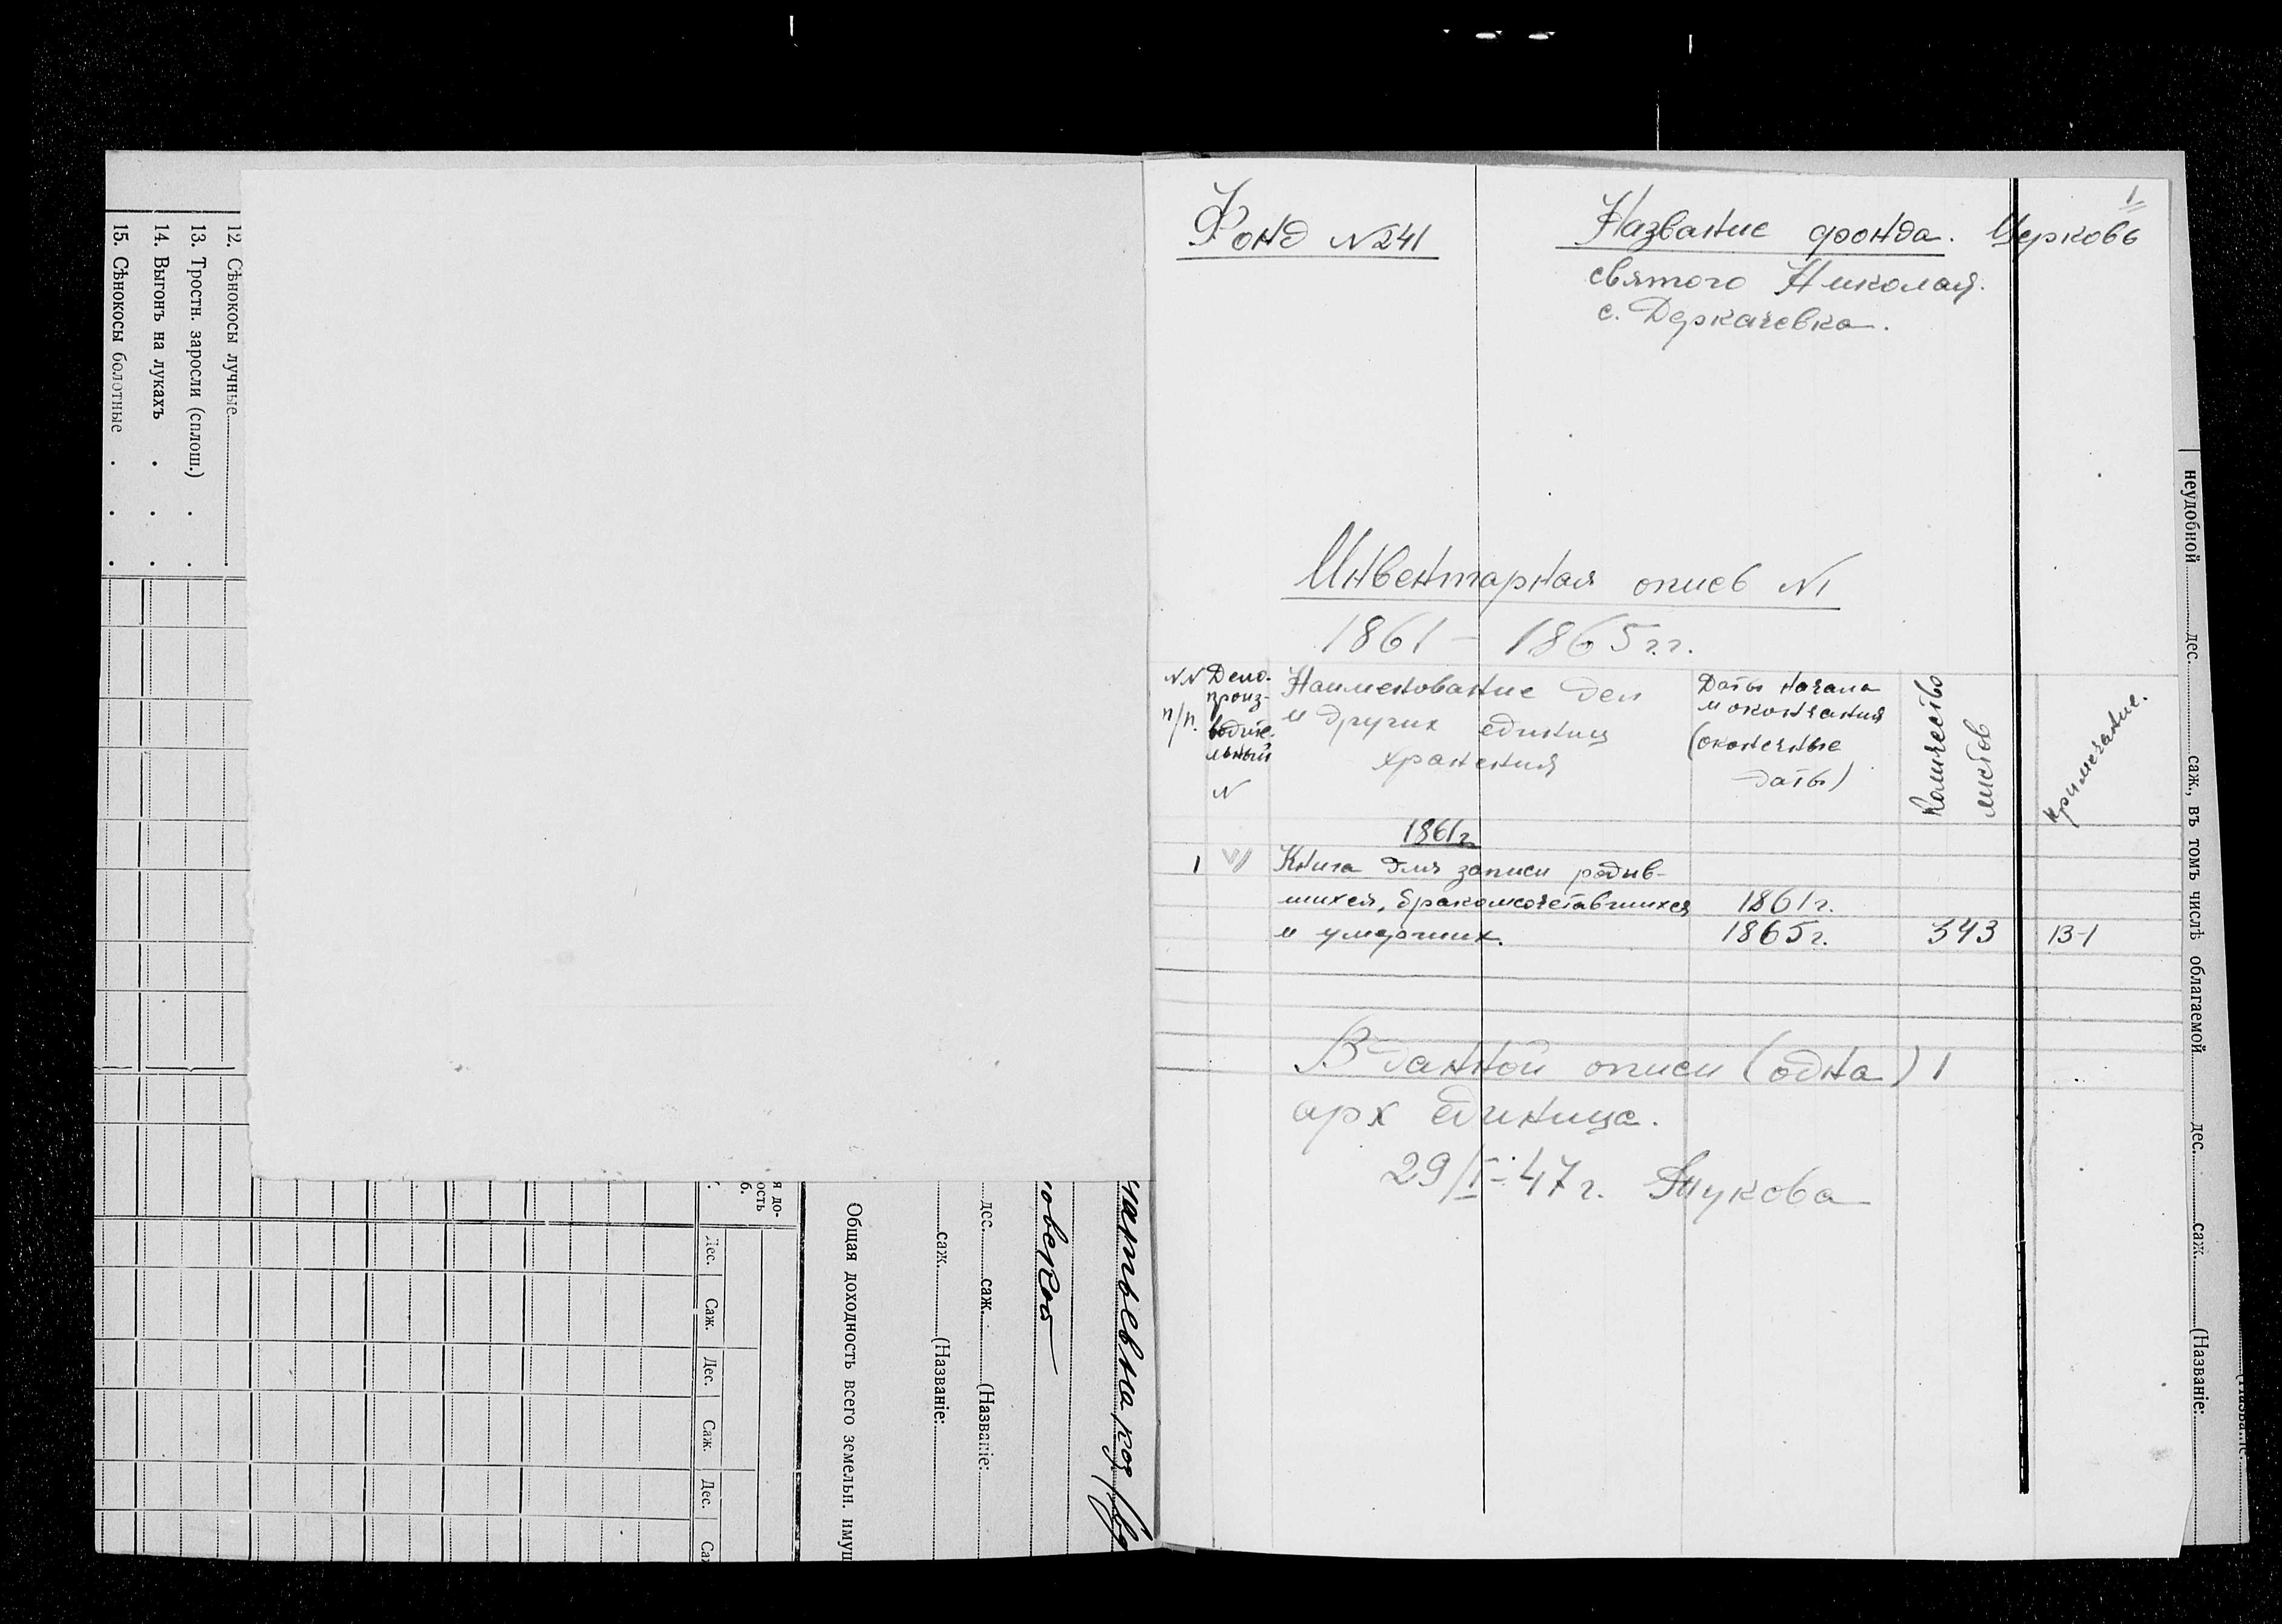 12. Сѣнокосы лучные
13. Тростн. заросли (сплош.)
14. Выгонъ на лукахъ
15. Сѣнокосы болотные
я до-
ость
б.
Дес.
Саж.
Дес.
Саж.
Дес.
Саж
Общая доходность всего земельн. имущ
саж. (Названіе:
дес. саж. (Названіе:
овской
1
Фонд N 241
Название фонда. Церковь
святого Николая.
с. Деркачевка.
Инвентарная опись N1
1861 – 1865 гг.
NN п/п.
Дело-
произ-
водите-
льный
N
Наименование дел
и других единиц
хранения
Даты начала
и окончания
(оконечные
даты)
Количество
листов
Примечание.
1861г.
1 Книга для записи родив-
шихся, бракомсочетавшихся 1861г.
и умерших. 1865г. 343 13-1
В данной описи (одна) 1
арх единица.
29/I-47г. Жукова
неудобной дес. саж., въ томъ числѣ облагаемой дес. саж. (Названіе: